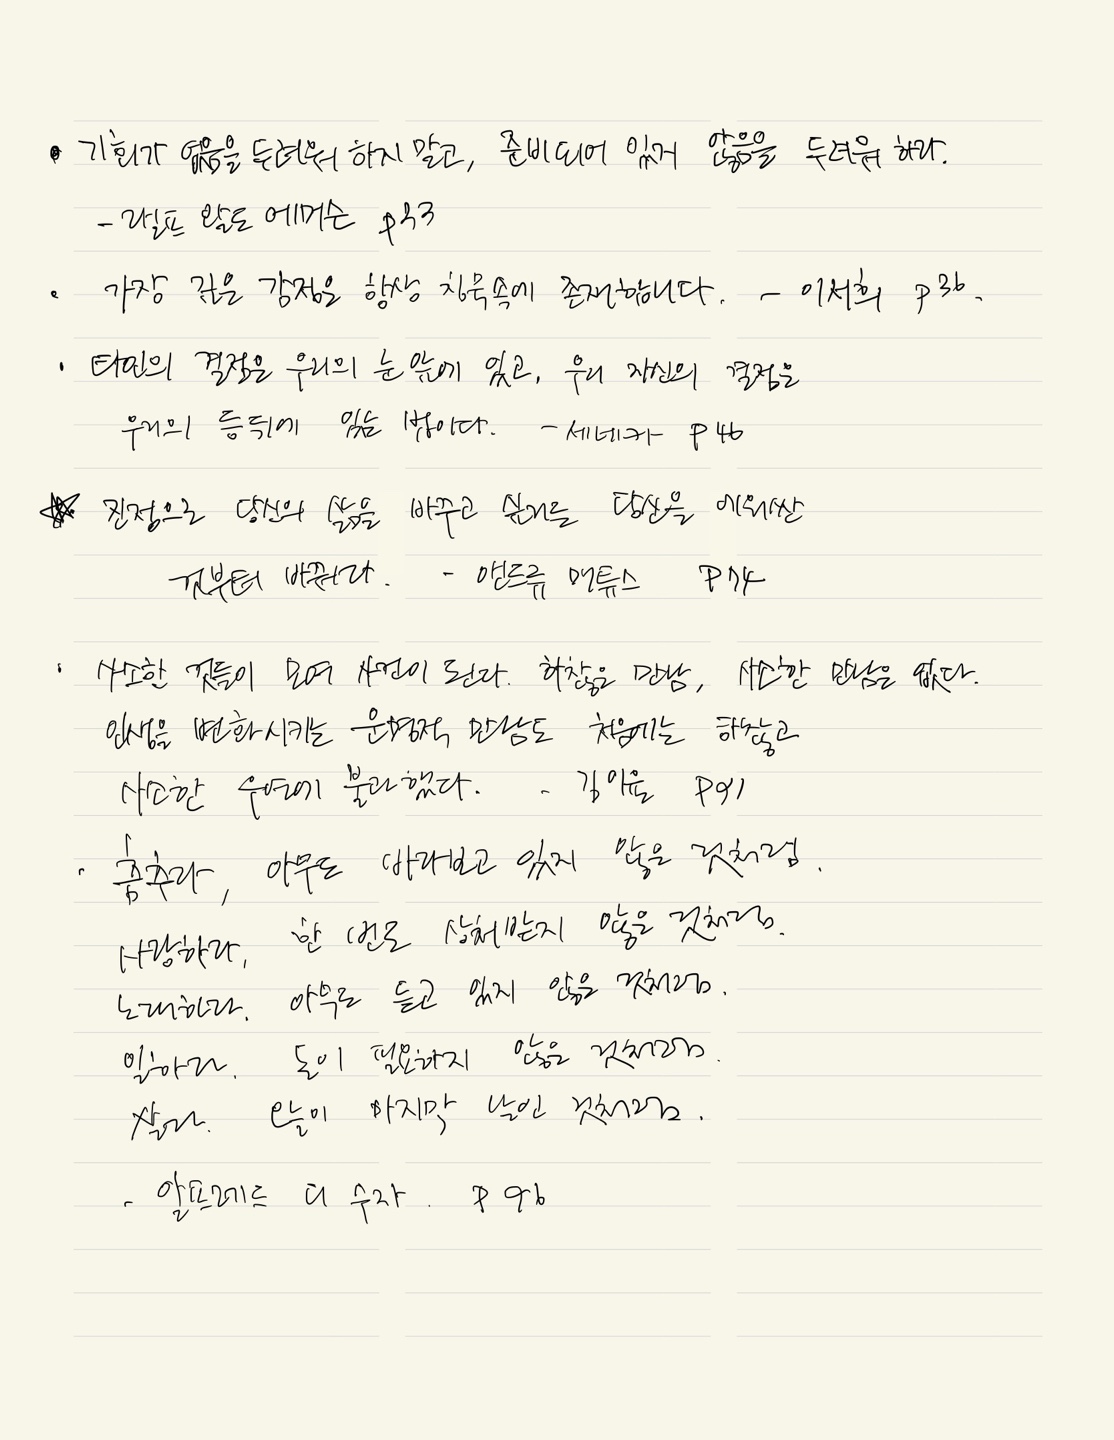 • 기회가 없음을 두려워 하지 말고, 준비되어 있지 않음을 두려워 하라.
- 랄프 왈도 에머슨 p33
• 가장 깊은 감정은 항상 침묵속에 존재합니다. - 이서희 p36.
• 타인의 결점은 우리의 눈 앞에 있고, 우리 자신의 결점은
우리의 등뒤에 있는 법이다. - 세네카 P46
☆ 진정으로 당신의 삶을 바꾸고 싶거든 당신을 에워싼
것부터 바꿔라. - 앤드류 매튜스 P74
• 사소한 것들이 모여 사건이 된다. 하찮은 만남, 사소한 만남은 없다.
인생을 변화시키는 운명적 만남도 처음에는 하찮고
사소한 우연에 불과했다. - 김이율 P91
• 춤추라, 아무도 바라보고 있지 않은 것처럼.
사랑하라, 한 번도 상처받지 않은 것처럼.
노래하라. 아무도 듣고 있지 않은 것처럼.
일하라. 돈이 필요하지 않은 것처럼.
살라. 오늘이 마지막 날인 것처럼.
- 알프레드 디 수자. P 96